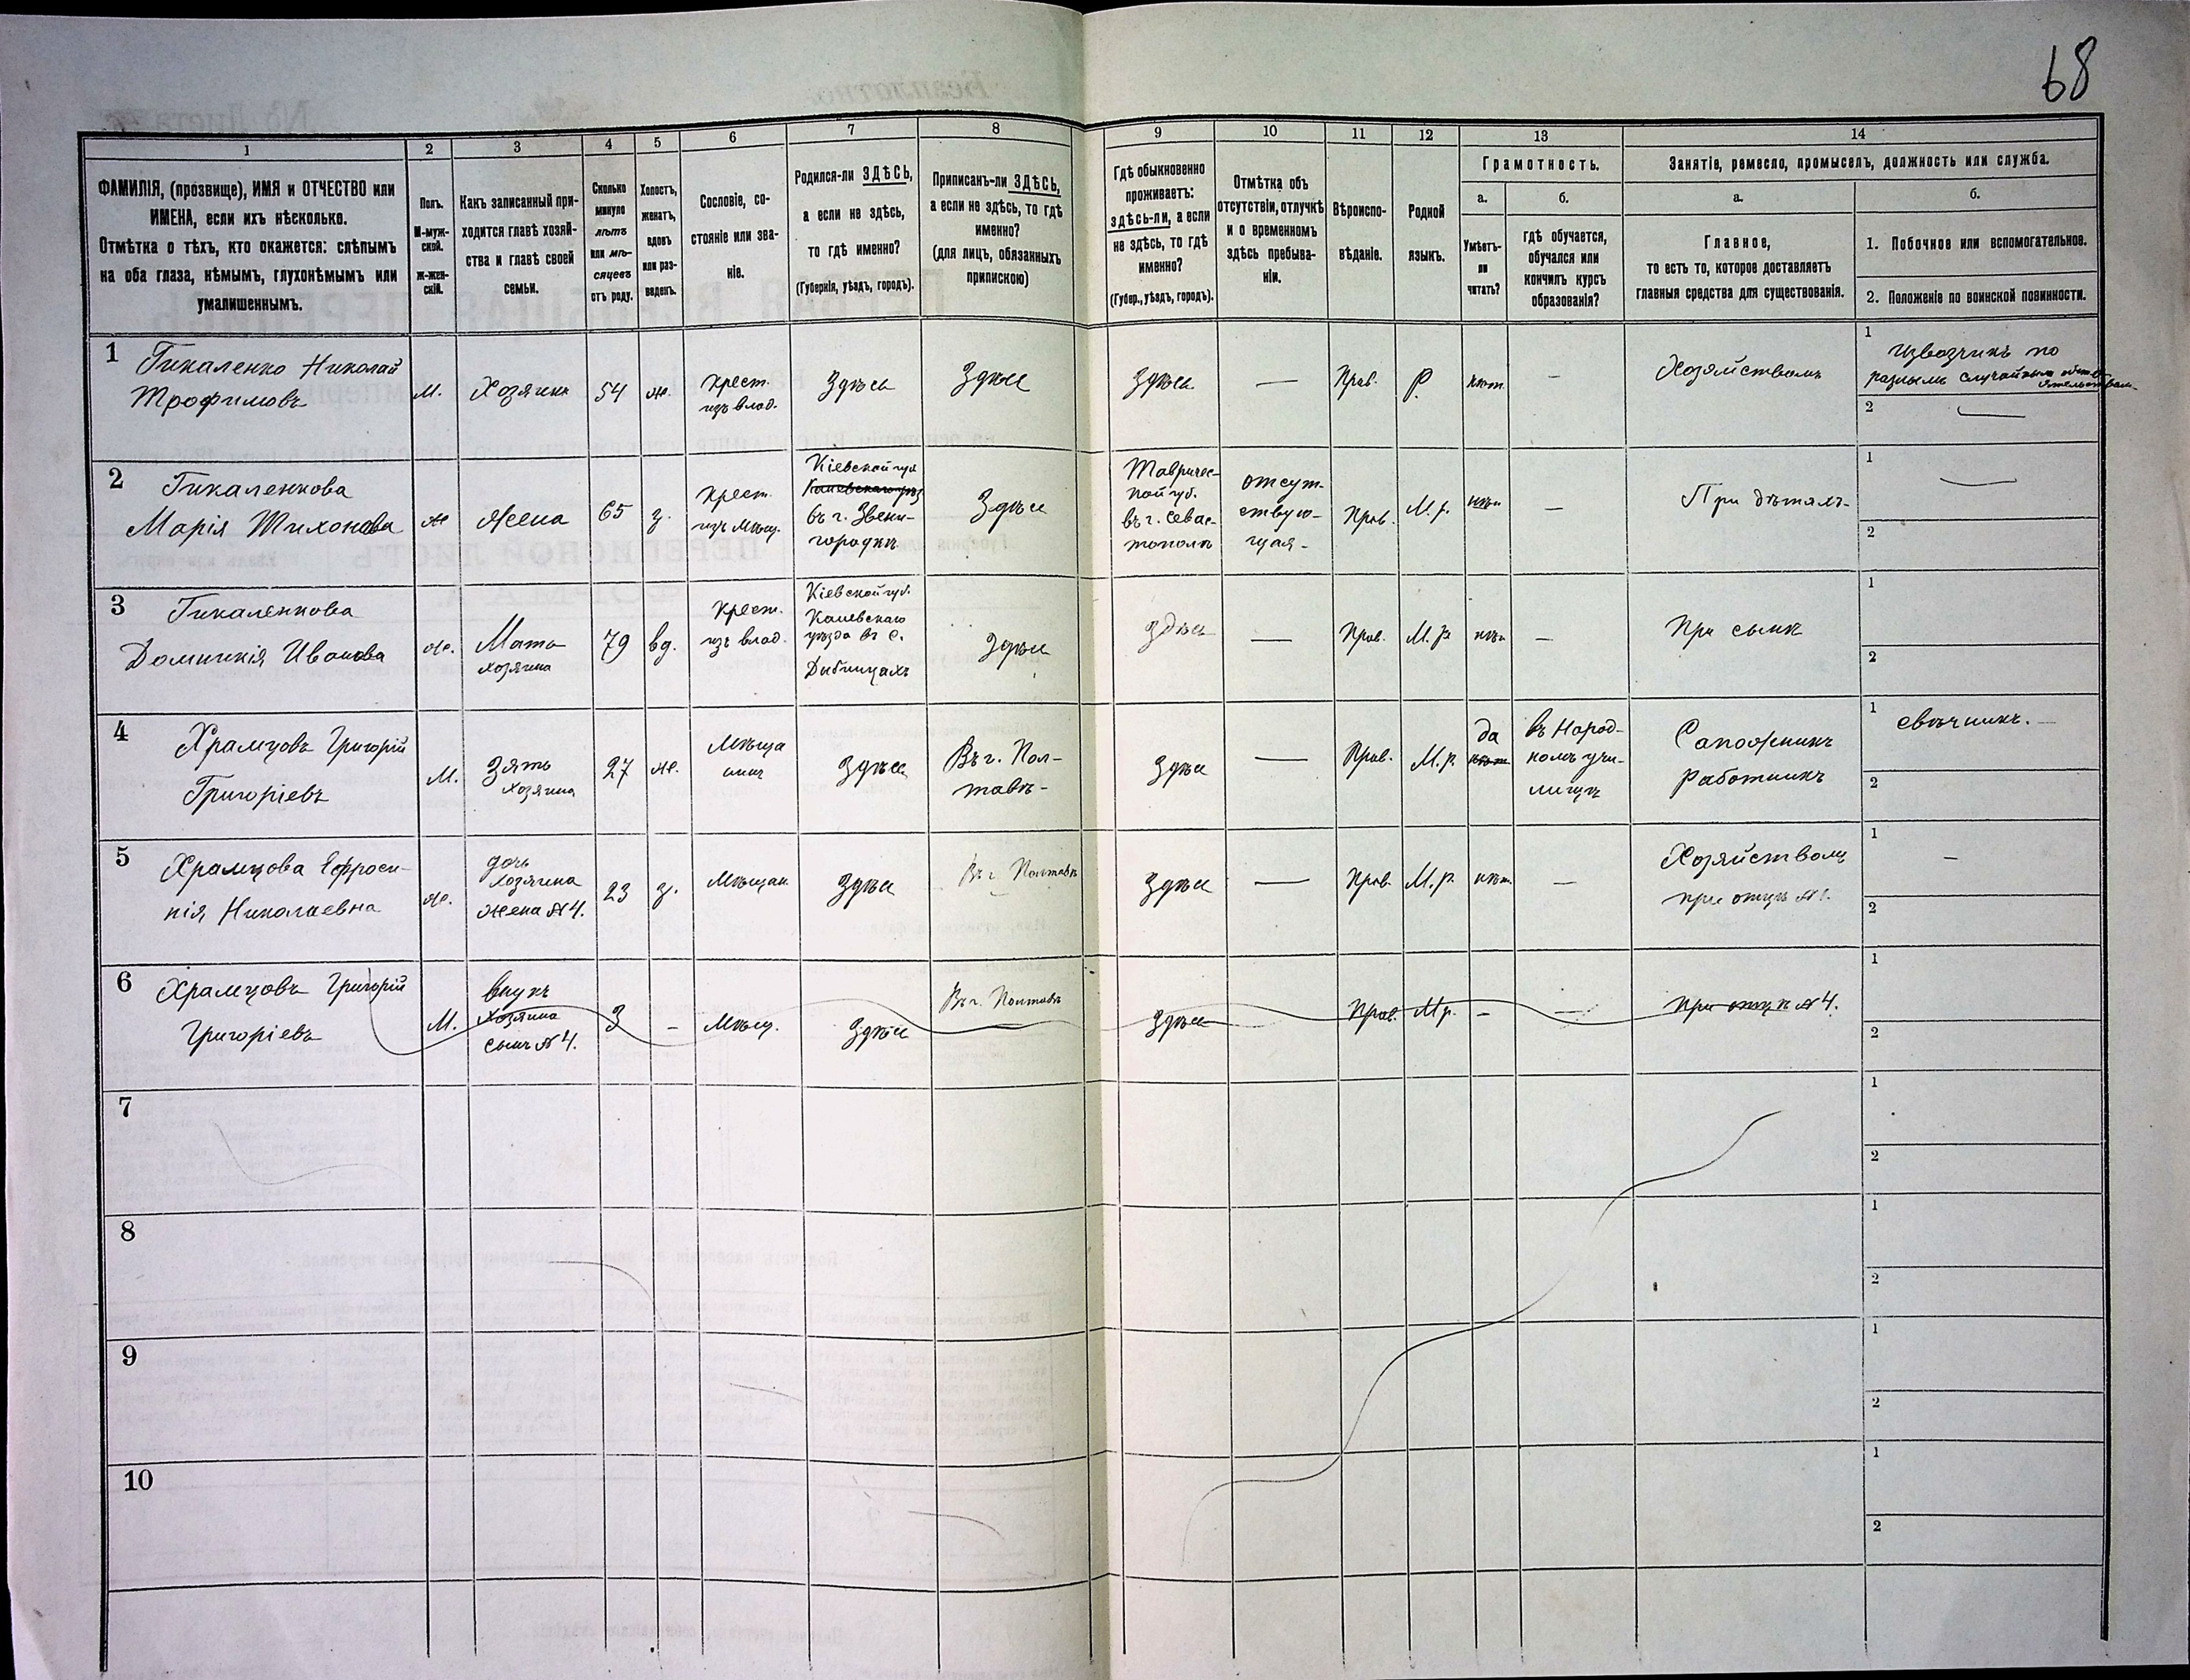 68
1 2 3 4 5 6 7 8 9 10 11 12 13 14
ФАМИЛІЯ, (прозвище), ИМЯ и ОТЧЕСТВО или
ИМЕНА, если ихъ нѣсколько.
Отмѣтка о тѣхъ, кто окажется: слѣпымъ
на оба глаза, нѣмымъ, глухонѣмымъ или
умалишеннымъ.
Полъ.
М-муж-
ской.
Ж-жен-
скій.
Какъ записанный при-
ходится главѣ хозяй-
ства и главѣ своей
семьи.
Сколько
минуло
лѣтъ
или мѣ-
сяцевъ
отъ роду.
Холостъ,
женатъ,
вдовъ
или раз-
веденъ.
Сословіе, со-
стояніе или зва-
ніе.
Родился-ли ЗДѢСЬ,
а если не здѣсь,
то гдѣ именно?
(Губернія, уѣздъ, городъ).
Приписанъ-ли ЗДѢСЬ,
а если не здѣсь, то гдѣ
именно?
(для лицъ, обязанныхъ
припискою)
Гдѣ обыкновенно
проживаетъ:
здѣсь-ли, а если
не здѣсь, то гдѣ
именно?
(Губер., уѣздъ, городъ).
Отмѣтка объ
отсутствіи, отлучкѣ
и о временномъ
здѣсь пребыва-
ніи.
Вѣроиспо-
вѣданіе.
Родной
языкъ.
Грамотность.
а.
Умѣетъ-
ли
читать?
б.
гдѣ обучается,
обучался или
кончилъ курсъ
образованія?
Занятіе, ремесло, промыселъ, должность или служба.
а.
Главное,
то есть то, которое доставляетъ
главныя средства для существованія.
б.
1. Побочное или вспомогательное.
2. Положеніе по воинской повинности.
1
Гикаленко Николай
Трофимовъ
М.
Хозяинъ
54
ж.
крест.
изъ влад.
Здѣсь
Здѣсь
Здѣсь
—
Прав.
Р.
нѣт
—
Хозяйствомъ
1
Извозчикъ по
разнымъ случайным
2
—
2
Гикаленкова
Марія Тихонова
ж
Жена
65
з.
крест.
изъ мѣщ.
Кіевской губ
Каневскаго уѣз
въ г. Звени-
городкѣ
Здѣсь
Тавричес-
кой губ.
въ г. Севас-
тополѣ
отсут-
ствую-
щая-
Прав.
М.р.
нѣт
—
При дѣтяхъ-
1
—
2
3
Гикаленкова
Домникія Иванова
ж.
Мать
хозяина
79
вд.
Крест.
изъ влад.
Кіевской губ.
Каневскаго
уѣзда въ с.
Дыбницахъ
Здѣсь
здѣсь
—
Прав.
М.р
нѣт
—
При сынѣ
1
2
4
Храмцовъ Григорій
Григоріевъ
М.
Зять
хозяина
27
ж.
Мѣща
нинъ
Здѣсь
Въ г. Пол-
тавѣ-
Здѣсь
—
Прав.
М.р.
да
нѣт
въ Народ-
номъ учи-
лищѣ
Сапожникъ
работникъ
1
свѣчникъ.—
2
5
Храмцова Ефроси-
нія Николаевна
ж.
дочь
хозяина
жена №4.
23
з.
Мѣщан
Здѣсь
Въ г. Полтавѣ
Здѣсь
—
Прав.
М.р
нѣт.
—
Хозяйствомъ
при отцѣ №1.
1
—
2
6
Храмцовъ Григорій
Григоріевъ
М.
внукъ
хозяина
сынъ №4.
3
-
Мѣщ.
Здѣсь
Въ г. Полтавѣ
Здѣсь
Прав.
М р.
–
—
При отцѣ №4.
1
2
7
1
2
8
1
2
9
1
2
10
1
2